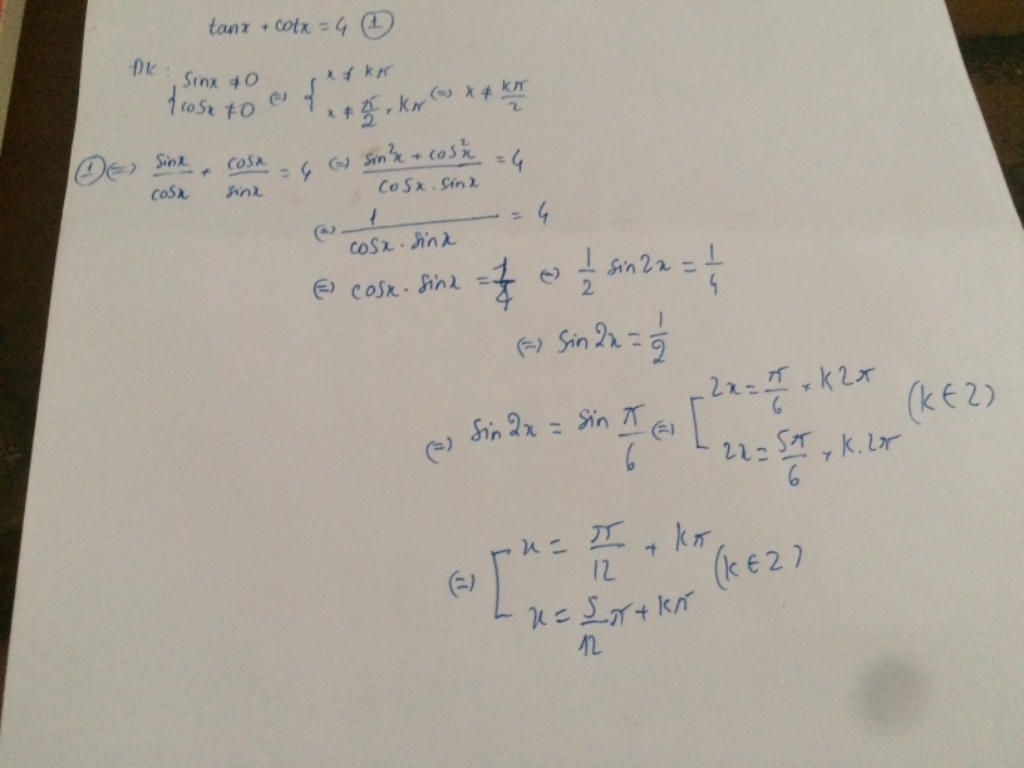 tanx + cotx = 4 ①
ĐK: { sinx ≠ 0 ; cosx ≠ 0 (=) { x ≠ kπ ; x ≠ π/2 + kπ (=) x ≠ kπ/2
① (=) sinx/cosx + cosx/sinx = 4 (=) (sin²x + cos²x)/(cosx . sinx) = 4
(=) 1/(cosx . sinx) = 4
(=) cosx . sinx = 1/4 (=) 1/2 sin2x = 1/4
(=) sin2x = 1/2
(=) sin2x = sin π/6 (=) [ 2x = π/6 + k2π ; 2x = 5π/6 + k.2π (k ∈ Z)
(=) [ x = π/12 + kπ ; x = 5/12 π + kπ (k ∈ Z)